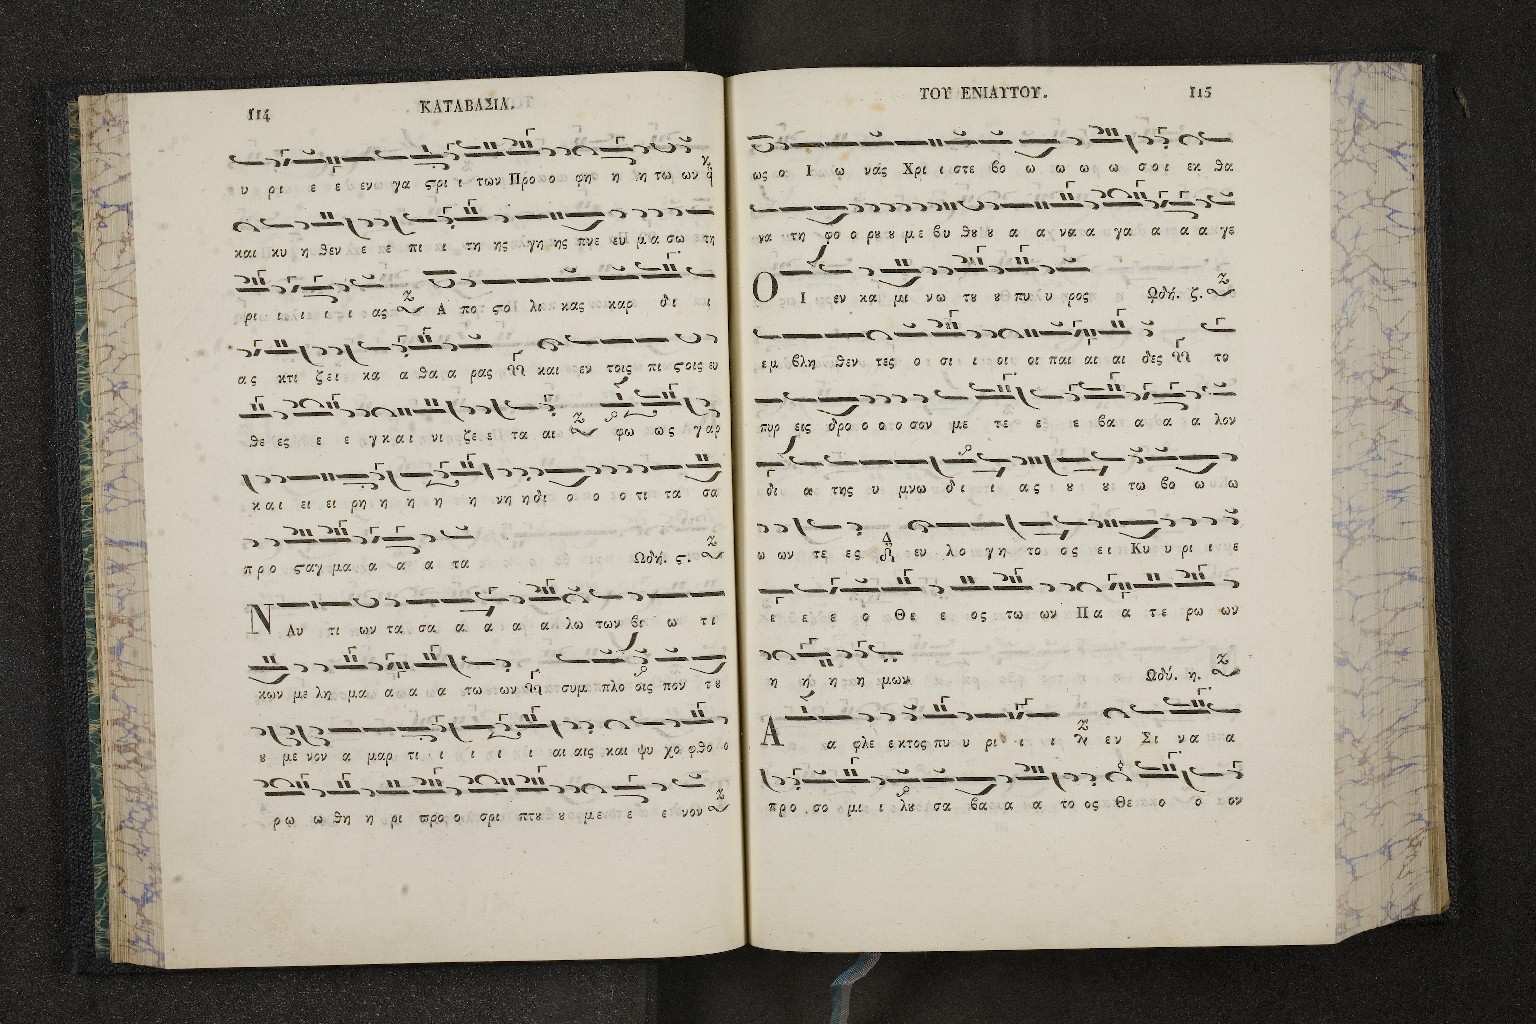 114
ΚΑΤΑΒΑΣΙΑ.
υ ρι ε ε εν γα ϛρι ι των Προ ο φη η η τω ων
και κυ η θεν ε ε πι ι τη ης λγη ης πνε ευ μα σω τη
ρι ι ι ι ι ι ας Α πο ϛο λι κας καρ δι ι
ας κτι ζει κα α θα α ρας και εν τοις πι ϛοις ευ
θε ες ε ε γκαι νι ζε ε τα αι φω ως γαρ
και ει ει ρη η η η η νη η δι ο ο ο τι τα σα
προ ϛαγ μα α α α τα Ωδή. ϛ.
Ναυ τι ων τα σα α α α α λω των βι ω τι
κων με λη μα α α α α τω ων συμ πλο οις πον τυ
υ με νον α μαρ τι ι ι ι ι ι αι αις και ψυ χο φθο ο
ρω ω θη η ρι προ ο σρι πτυ υ με ε ε ε νον
ΤΟΥ ΕΝΙΑΥΤΟΥ.
115
ως ο Ι ω νάς Χρι ι στε βο ω ω ω ω σοι εκ θα
να τη φο ο ρυ υ με βυ θυ υ α α να α γα α α α γε
Ο Ι εν κα μι νω τυ υ πυ υ ρος Ωδή. ζ.
εμ βλη θεν τες ο σι ι οι οι παι αι αι δες το
πυρ εις δρο ο ο ο σον με τε ε ε βα α α α λον
δι α της υ μνω δι ι ας ι υ υ τω βο ω ω
ω ων τε ες ευ λο γη το ος ει Κυ υ ρι ι ε
ε ε ε ο Θε ε ος τω ων Πα α τε ρω ων
η η η η μων Ωδή. η.
Α α φλε εκτος πυ υ ρι ι ι εν Σι να α
προ σο μι ι λυ σα βα α α το ος Θε ο ο ον